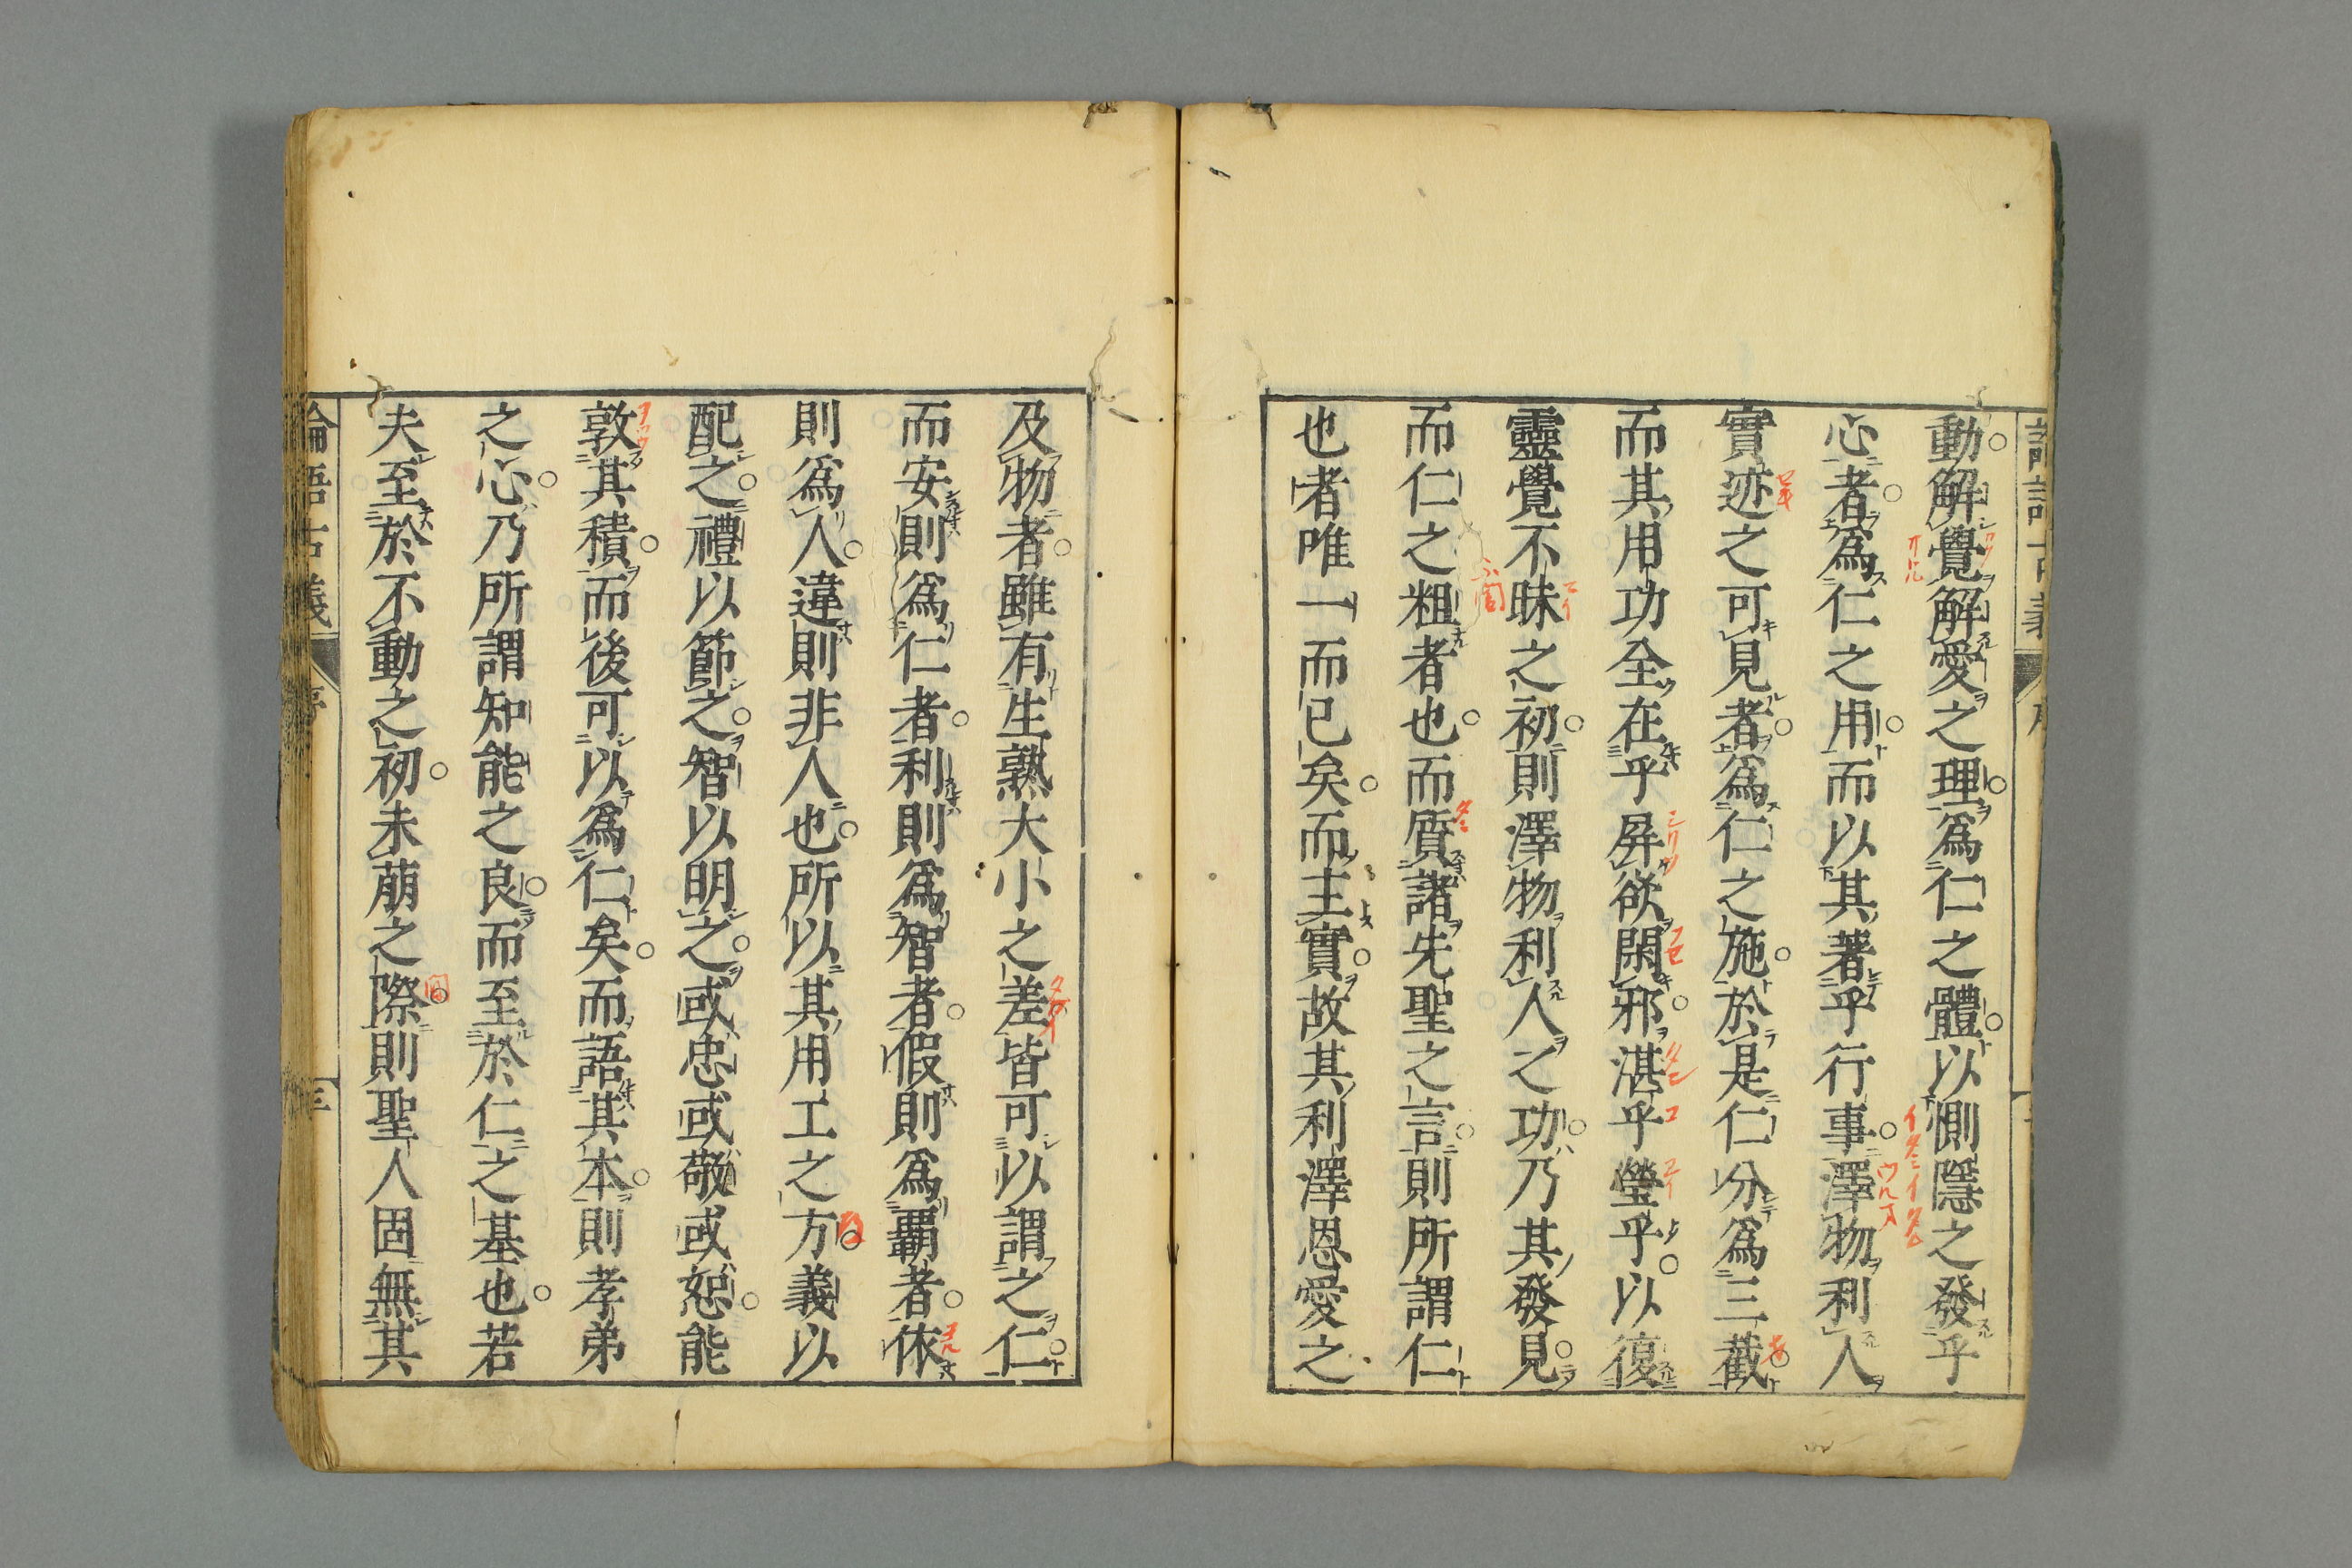 動解覺解愛之理爲仁之體以惻隱之發乎
心者爲仁之用而以其著乎行事澤物利人
實迹之可見者爲仁之施於是仁分爲三截
而其用功全在乎屏欲閑邪湛乎瑩乎以復
靈覺不昧之初則澤物利人之功乃其發見
而仁之粗者也而質諸先聖之言則所謂仁
也者唯一而已矣而主實故其利澤恩愛之
及物者雖有生熟大小之差皆可以謂之仁
而安則爲仁者利則爲智者假則爲覇者依
則爲人違則非人也所以其用工之方義以
配之禮以節之智以明之或忠或敬或恕能
敦其積而後可以爲仁矣而語其本則孝弟
之心乃所謂知能之良而至於仁之基也若
夫至於不動之初未萠之際則聖人固無其
論語古義
序
三